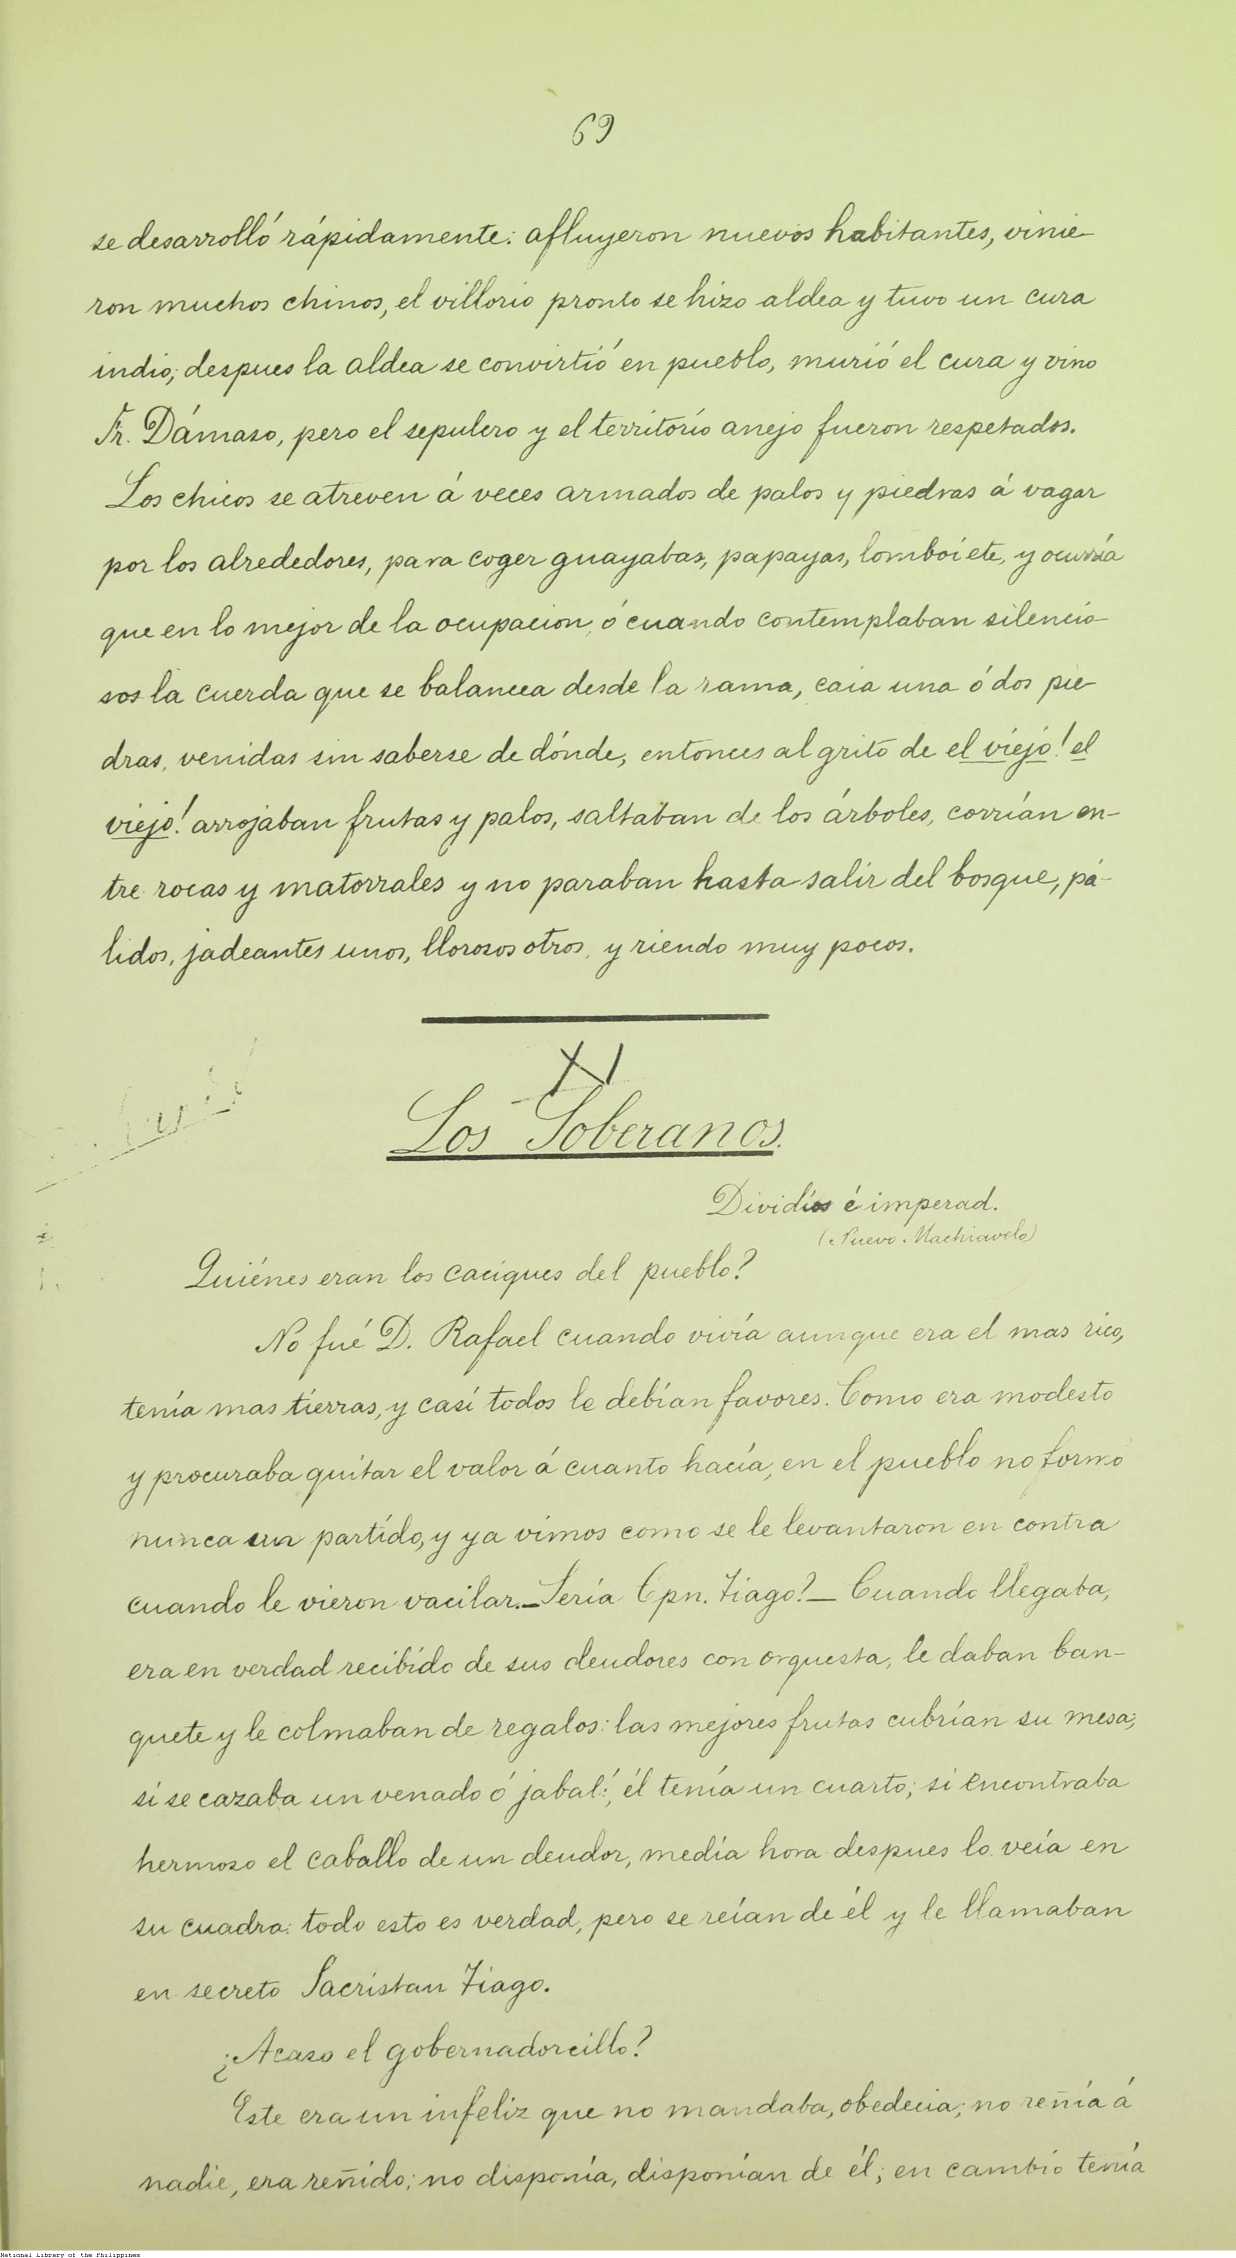 69
se desarrolló rápidamente: afluyeron nuevos habitantes, vinie-
ron muchos chinos, el villorio pronto se hizo aldea y tuvo un cura
indio; despues la aldea se convirtió en pueblo, murió el cura y vino
Fr. Dámaso, pero el sepulcro y el territorio anejo fueron respetados.
Los chicos se atreven á veces armados de palos y piedras á vagar
por los alrededores, para coger guayabas, papayas, lomboi etc, y ocurría
que en lo mejor de la ocupacion, ó cuando contemplaban silencio-
sos la cuerda que se balancea desde la rama, caia una ó dos pie-
dras, venidas sin saberse de dónde, entonces al grito de el viejo! el
viejo! arrojaban frutas y palos, saltaban de los árboles, corrían en-
tre rocas y matorrales y no paraban hasta salir del bosque, pá-
lidos, jadeantes unos, llorosos otros, y riendo muy pocos.
XI
Los Soberanos.
Dividios é imperad.
(Nuevo Machiavelo)
Quiénes eran los caciques del pueblo?
No fué D. Rafael cuando vivía aunque era el mas rico,
tenía mas tierras, y casi todos le debían favores. Como era modesto
y procuraba quitar el valor á cuanto hacía, en el pueblo no formó
nunca un partido, y ya vimos como se le levantaron en contra
cuando le vieron vacilar._Sería Cpn. Tiago?_ Cuando llegaba,
era en verdad recibido de sus deudores con orquesta, le daban ban-
quete y le colmaban de regalos: las mejores frutas cubrían su mesa;
si se cazaba un venado ó jabalí, él tenía un cuarto; si encontraba
hermoso el caballo de un deudor, media hora despues lo veía en
su cuadra: todo esto es verdad, pero se reían de él y le llamaban
en secreto Sacristan Tiago.
¿Acaso el gobernadorcillo?
Este era un infeliz que no mandaba, obedecia; no reñía á
nadie, era reñido; no disponía, disponían de él; en cambio tenía
National Library of the Philippines